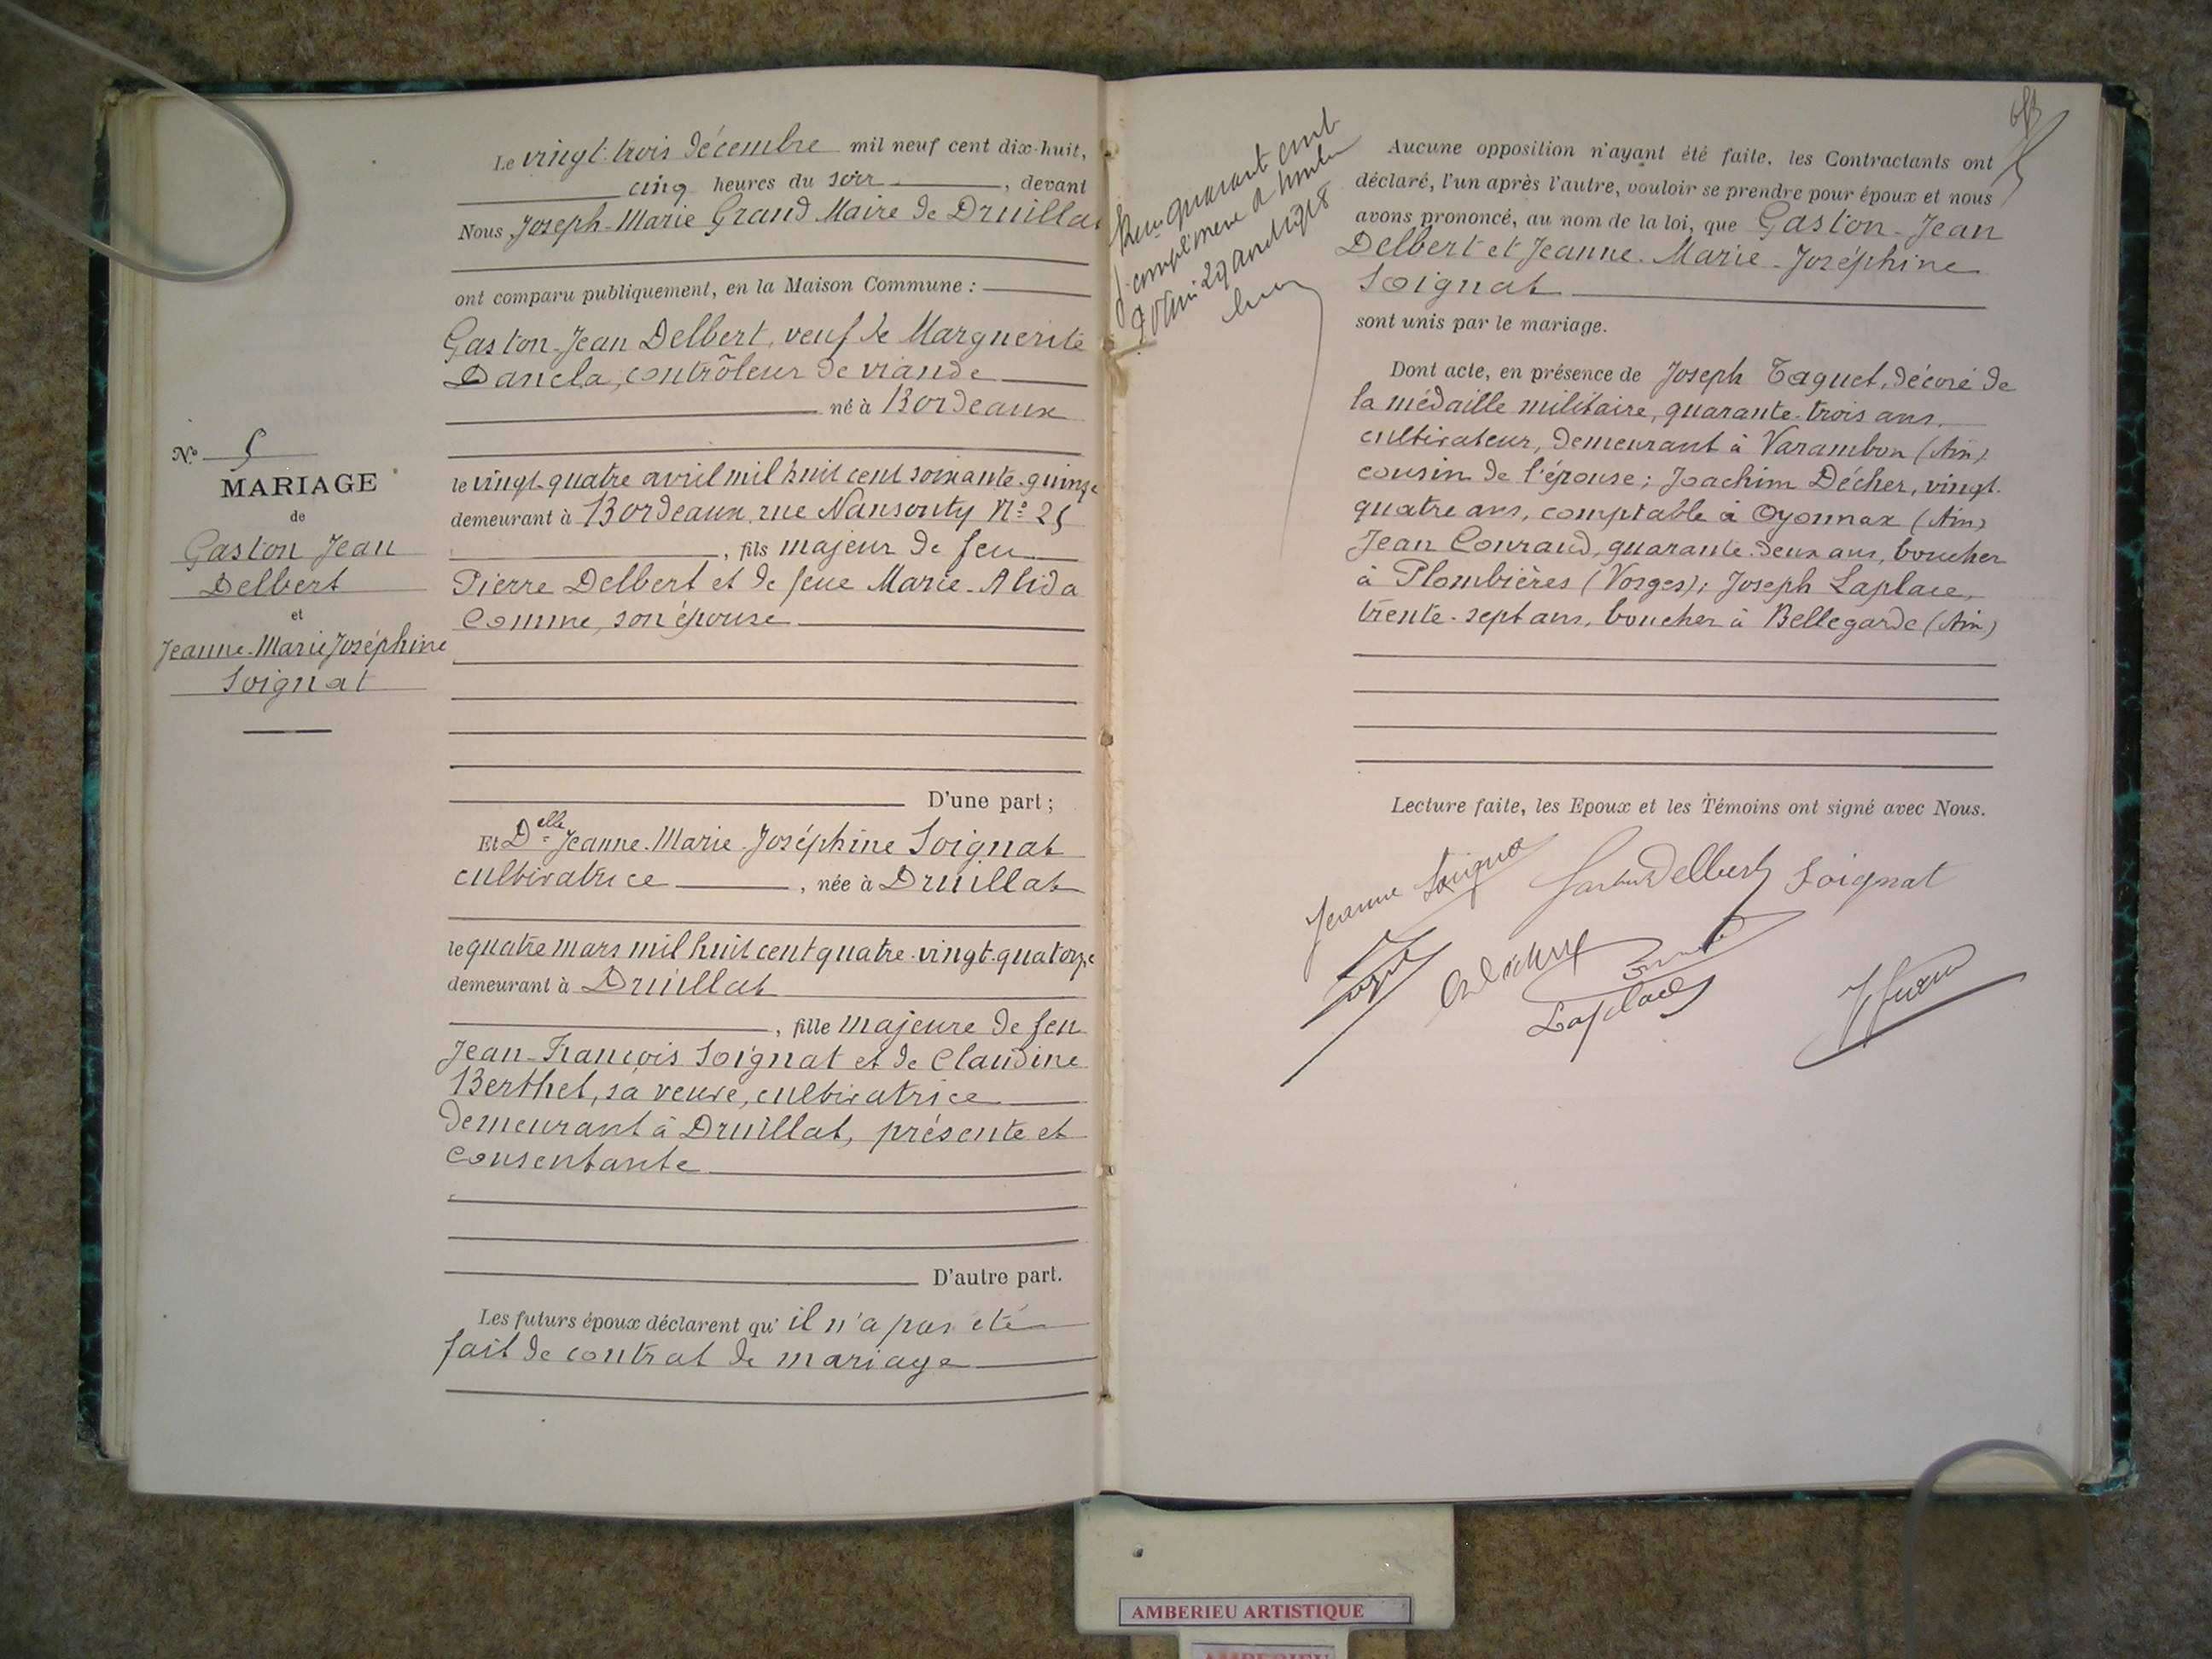 N.° 5
MARIAGE
de
Gaston Jean
Delbert
et
Jeanne-Marie Joséphine
Soignat
Le vingt-trois décembre mil neuf cent dix-huit,
cinq heures du soir, devant
Nous Joseph-Marie Grand Maire de Druillat
ont comparu publiquement, en la Maison Commune :
Gaston-Jean Delbert, veuf de Marguerite
Dancla, contrôleur de viande
né à Bordeaux
le vingt-quatre avril mil huit cent soixante-quinze
demeurant à Bordeaux, rue Nansouty N° 25
, fils majeur de feu
Pierre Delbert et de feue Marie-Alida
Comme, son épouse
D'une part ;
Et Delle Jeanne-Marie-Joséphine Soignat
cultivatrice, née à Druillat
le quatre mars mil huit cent quatre-vingt-quatorze
demeurant à Druillat
, fille majeure de feu
Jean-François Soignat et de Claudine
Berthet, sa veuve, cultivatrice
demeurant à Druillat, présente et
consentante
D'autre part.
Les futurs époux déclarent qu' il n'a pas été
fait de contrat de mariage
Aucune opposition n'ayant été faite, les Contractants ont
déclaré, l'un après l'autre, vouloir se prendre pour époux et nous
avons prononcé, au nom de la loi, que Gaston-Jean
Delbert et Jeanne-Marie-Joséphine
Soignat
sont unis par le mariage.
Dont acte, en présence de Joseph Taguet, décoré de
la médaille militaire, quarante-trois ans,
cultivateur, demeurant à Varambon (Ain)
cousin de l'épouse ; Joachim Décher, vingt-
quatre ans, comptable à Oyonnax (Ain)
Jean Conraud, quarante-deux ans, boucher
à Plombières (Vosges) ; Joseph Laplace,
trente-sept ans, boucher à Bellegarde (Ain)
Lecture faite, les Epoux et les Témoins ont signé avec Nous.
Jeanne Soignat
Gaston Delbert
Soignat
Laplace
AMBERIEU ARTISTIQUE
AMBERIEU